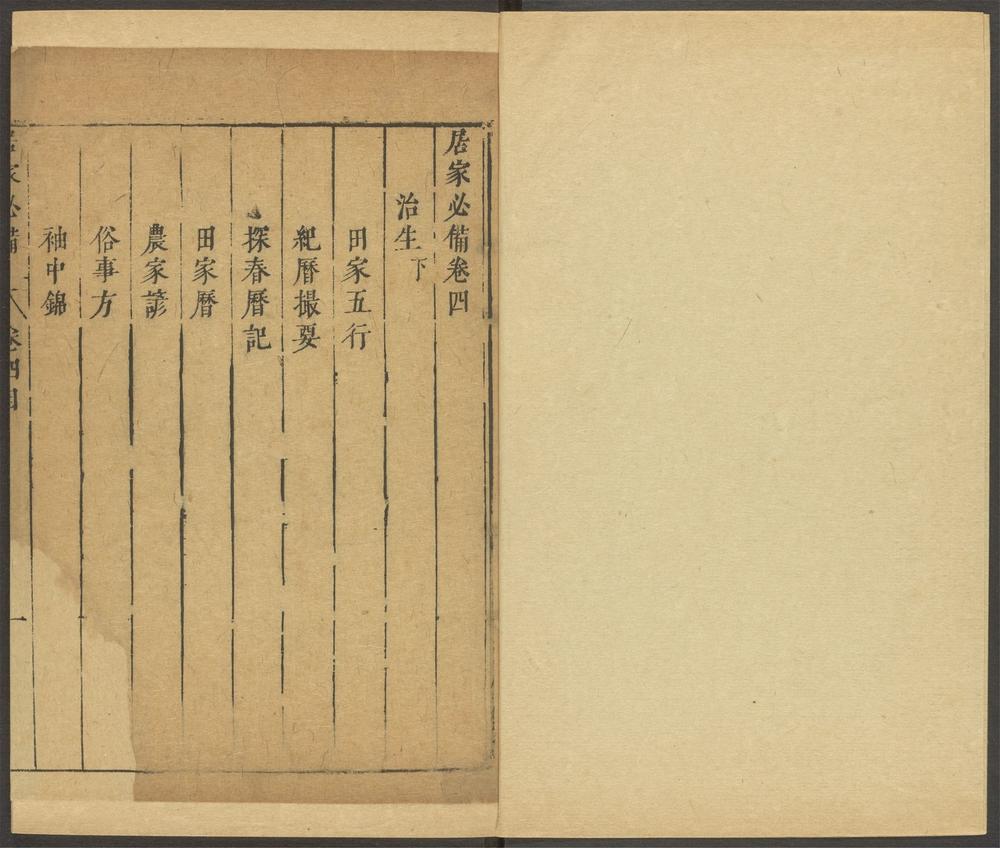 居家必備卷四
治生下
田家五行
紀曆撮要
探春曆記
田家曆
農家諺
俗事方
袖中錦
居家必備 卷四目 一